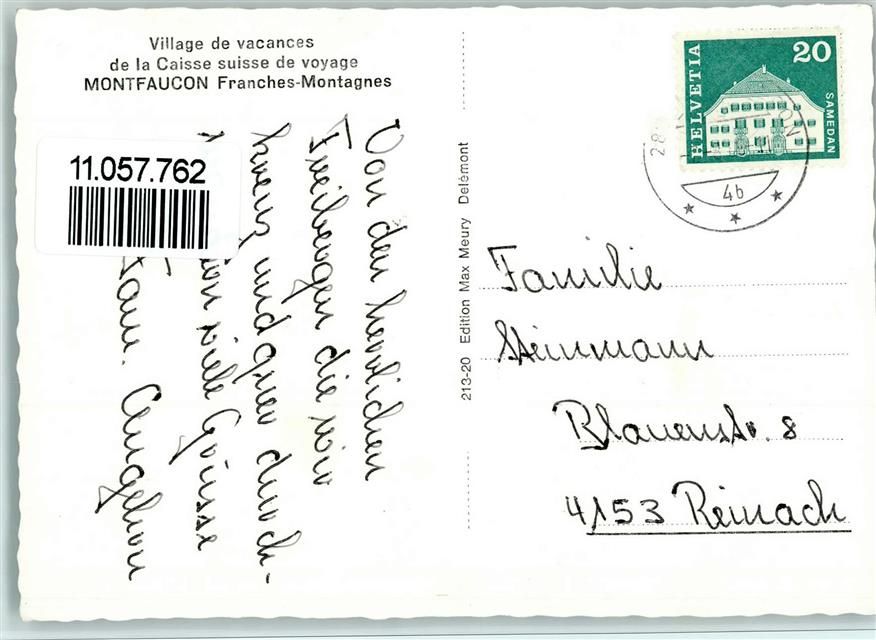 Village de vacances
de la Caisse suisse de voyage
MONTFAUCON Franches-Montagnes
11.057.762
Von den herrlichen
Freibergen die wir
kreuz und quer durch-
viele Grüsse
Fam. Angehrn
213-20 Edition Max Meury Delémont
HELVETIA
20
SAMEDAN
28
4b
Familie
Steinmann
Blauenstr. 8
4153 Reinach